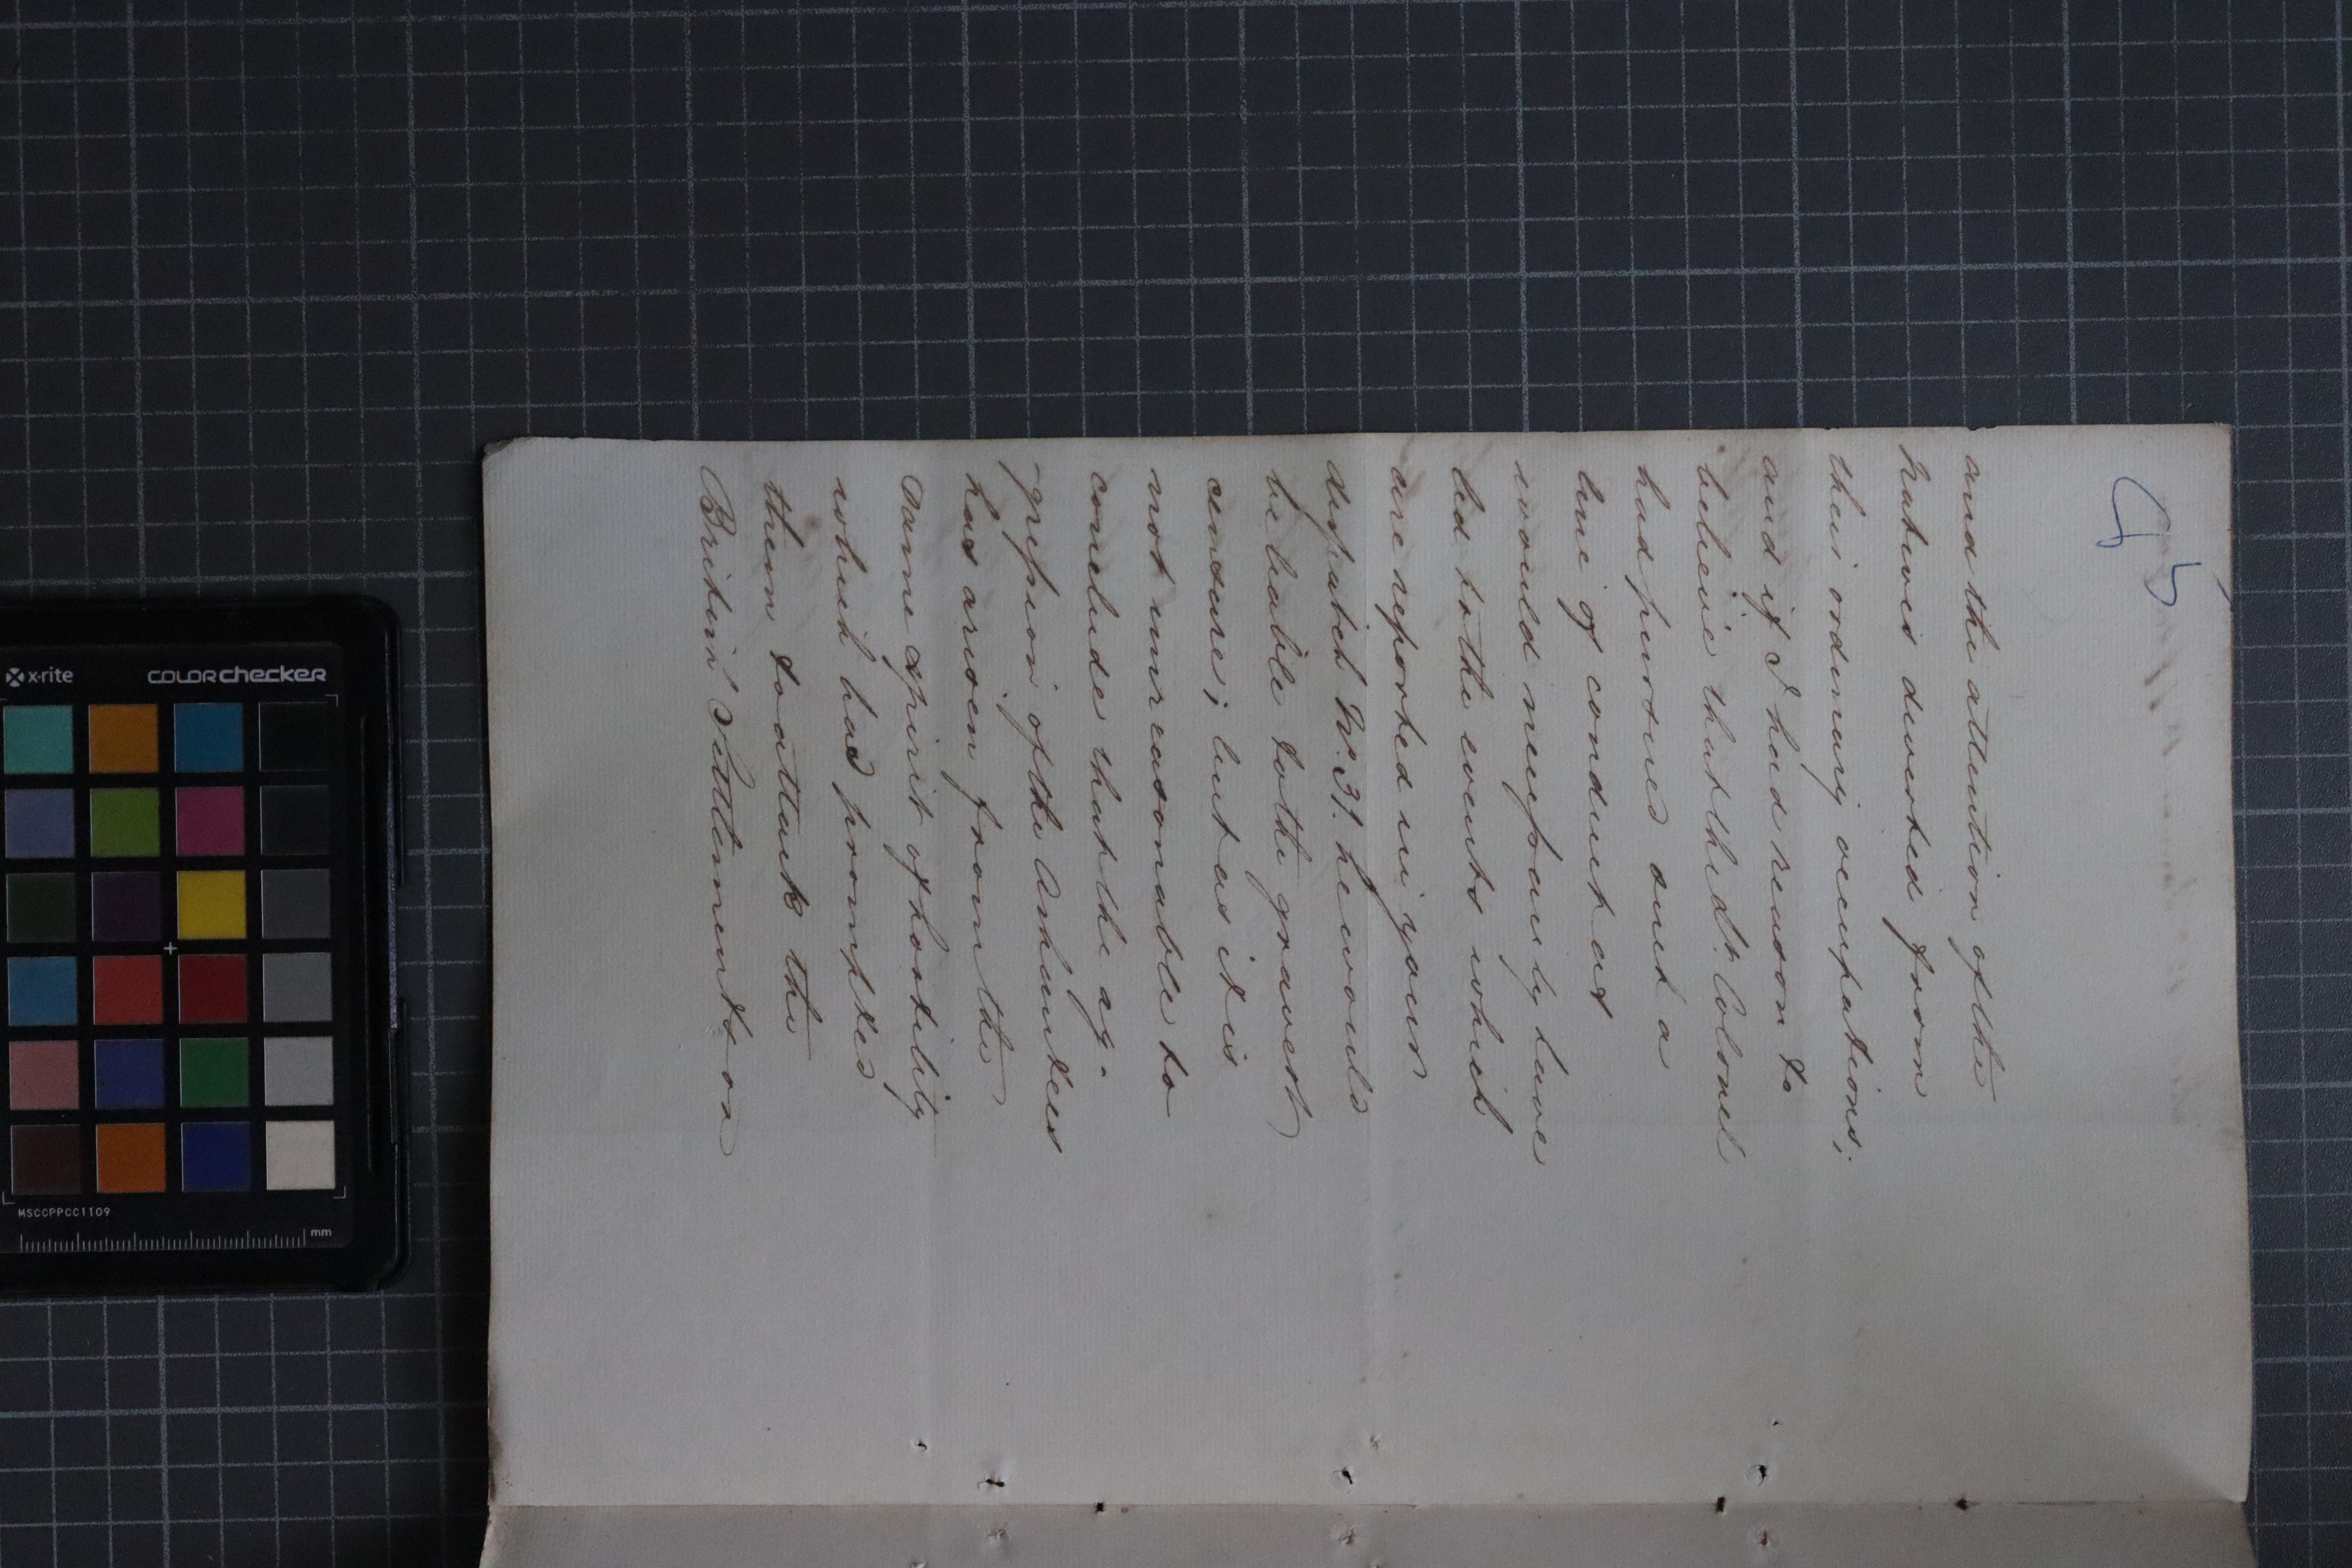 45
and the attention of the
Natives diverted from
their ordinary occupations;
and if I had reason to
believe that the Lt. Colonel
had pursued such a
line of conduct as
would necessarily have
led to the events which
are reported in your
despatch No. 31. he would
be liable to the gravest
censure; but as it is
not unreasonable to
conclude that the ag-
-gression of the Ashantees
has arisen from the
same spirit of hostility
which had prompted
them to attack the
British Settlements on
x-rite colorchecker
MSCCPPCC1109
mm